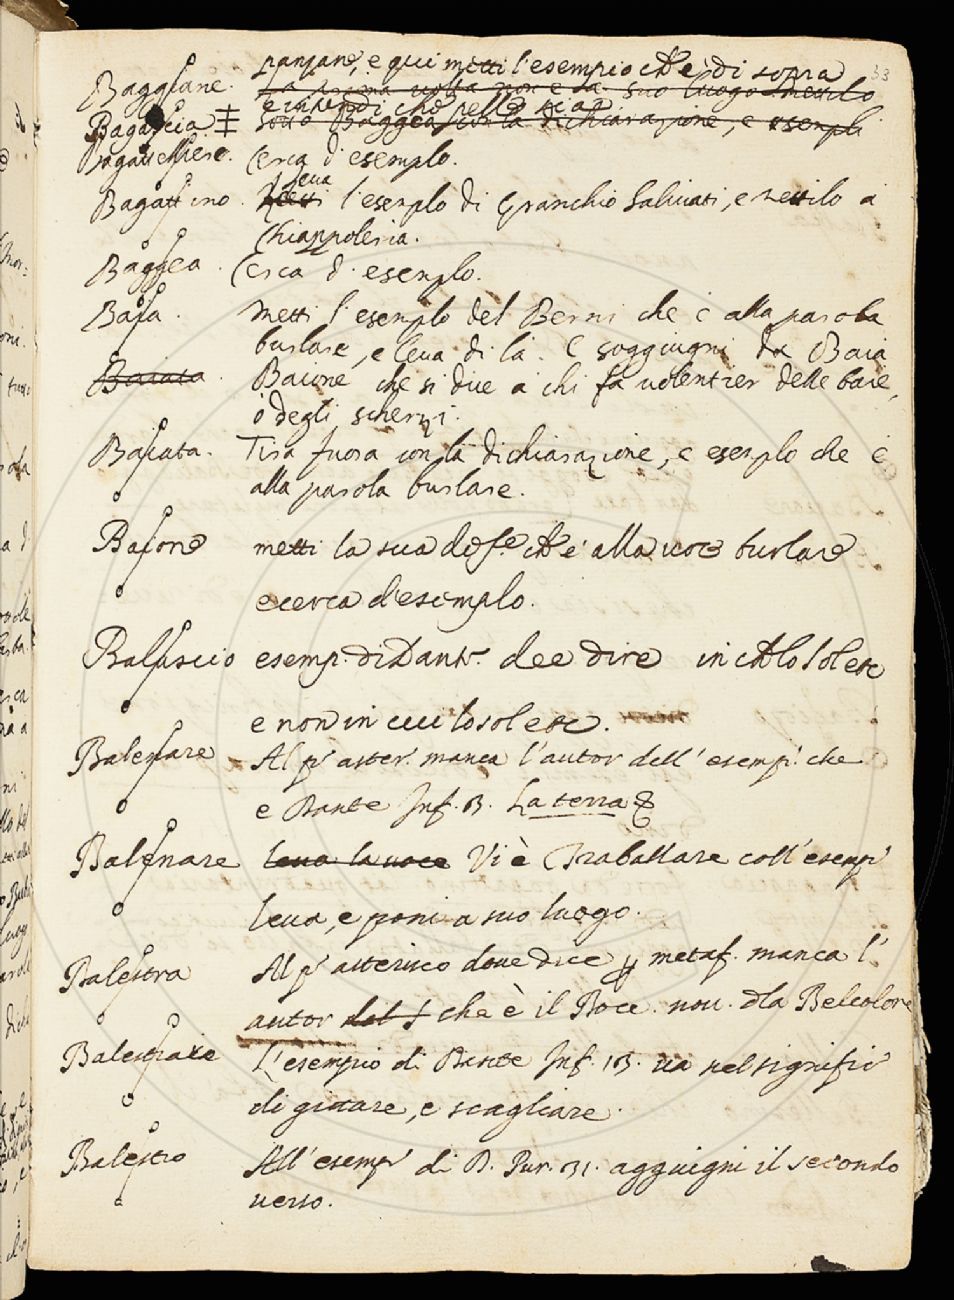 33
panjane, e qui metti l'esempio che è di sopra
Baggiane. La prima volta non è da suo luogo mettilo
e intendi che
Bagascia ‡ sotto Baggea con la dichiarazione, e esempli
Bagattelliero. Cerca d'esemplo.
Leva
Bagattino. Metti l'esemplo di Granchio Salviati, e mettilo a
Chiappoleria.
Baggea. Cerca d'esemplo.
Baja. Metti l'esemplo del Berni che è alla parola
burlare, e leva di là. E soggiugni da Baia
Baiata. Baione che si dice a chi fa volentier delle baie,
ò degli scherzi.
Bajata. Tira fuora con la dichiarazione, e esemplo che è
alla parola burlare.
Bajone metti la sua dif.e che è alla voce burlare
e cerca d'esemplo.
Baluscio esemp. di Dant. dee dire in chlosolere
e non in cuilosolere.
Balenare Al p.o aster. manca l'autor dell'esemp. che
e Dante Inf. 3. La terra &
Balenare leva la voce Vi è Traballare coll'esemp.
leva, e poni a suo luogo.
Balestra Al p.o asterisco dove dice p metaf. manca l'
autor del s che è il Bocc. nov. dla Belcolore
Balestrare L'esempio di Dante Inf. 13. va nel signific.
di gittare, e scagliare.
Balestro All'esemp. di D. Pur. 31. aggiugni il secondo
verso.